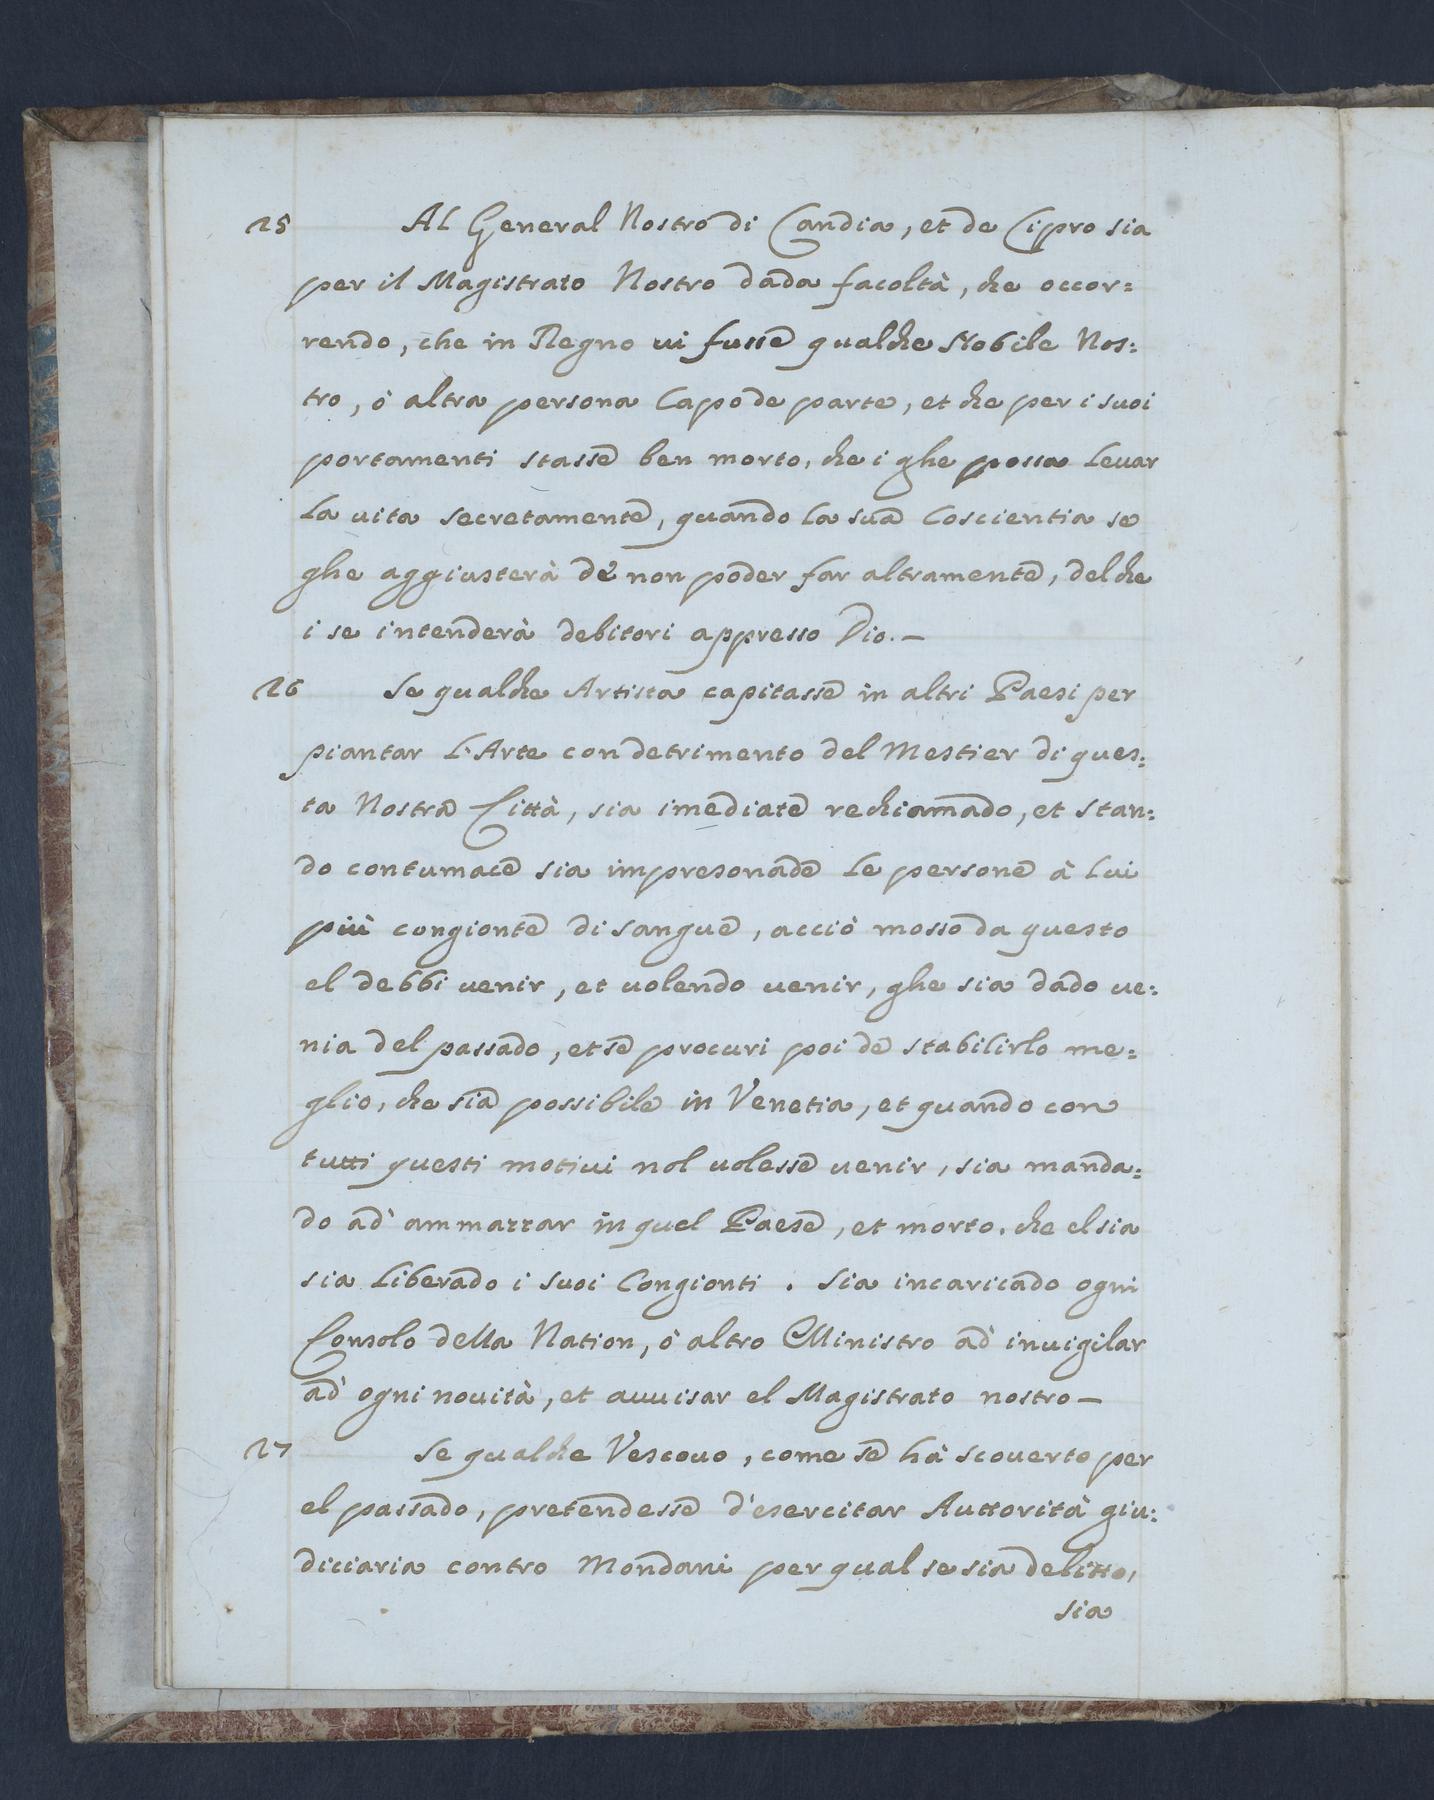 25 Al General Nostro di Candia, et de Cipro sia
per il Magistrato Nostro dada facoltà, che occor=
rendo, che in Regno vi fusse qualche Nobile Nos=
tro, ò altra persona Capo de parte, et che per i suoi
portamenti stasse ben morto, che i ghe possa levar
la vita secretamente, quando la sua Coscientia se
ghe aggiusterà de non poder far altramente, del che
i se intenderà debitori appresso Dio.—
26 Se qualche Artista capitasse in altri Paesi per
piantar l'Arte con detrimento del Mestier di ques=
ta Nostra Città, sia imediate rechiamado, et stan=
do contumace sia impresonade le persone à lui
più congionte di sangue, acciò mosso da questo
el debbi venir, et volendo venir, ghe sia dado ve=
nia del passado, et se procuri poi de stabilirlo me=
glio, che sia possibile in Venetia, et quando con
tutti questi motivi nol volesse venir, sia manda=
do ad' ammazzar in quel Paese, et morto, che el sia
sia liberado i suoi Congionti. Sia incaricado ogni
Consolo della Nation, ò altro Ministro ad' invigilar
ad' ogni novità, et avvisar el Magistrato nostro—
27 Se qualche Vescovo, come se hà scoverto per
el passado, pretendesse d'esercitar Auttorità giu=
diciaria contro Mondani per qual se sia delitto,
sia